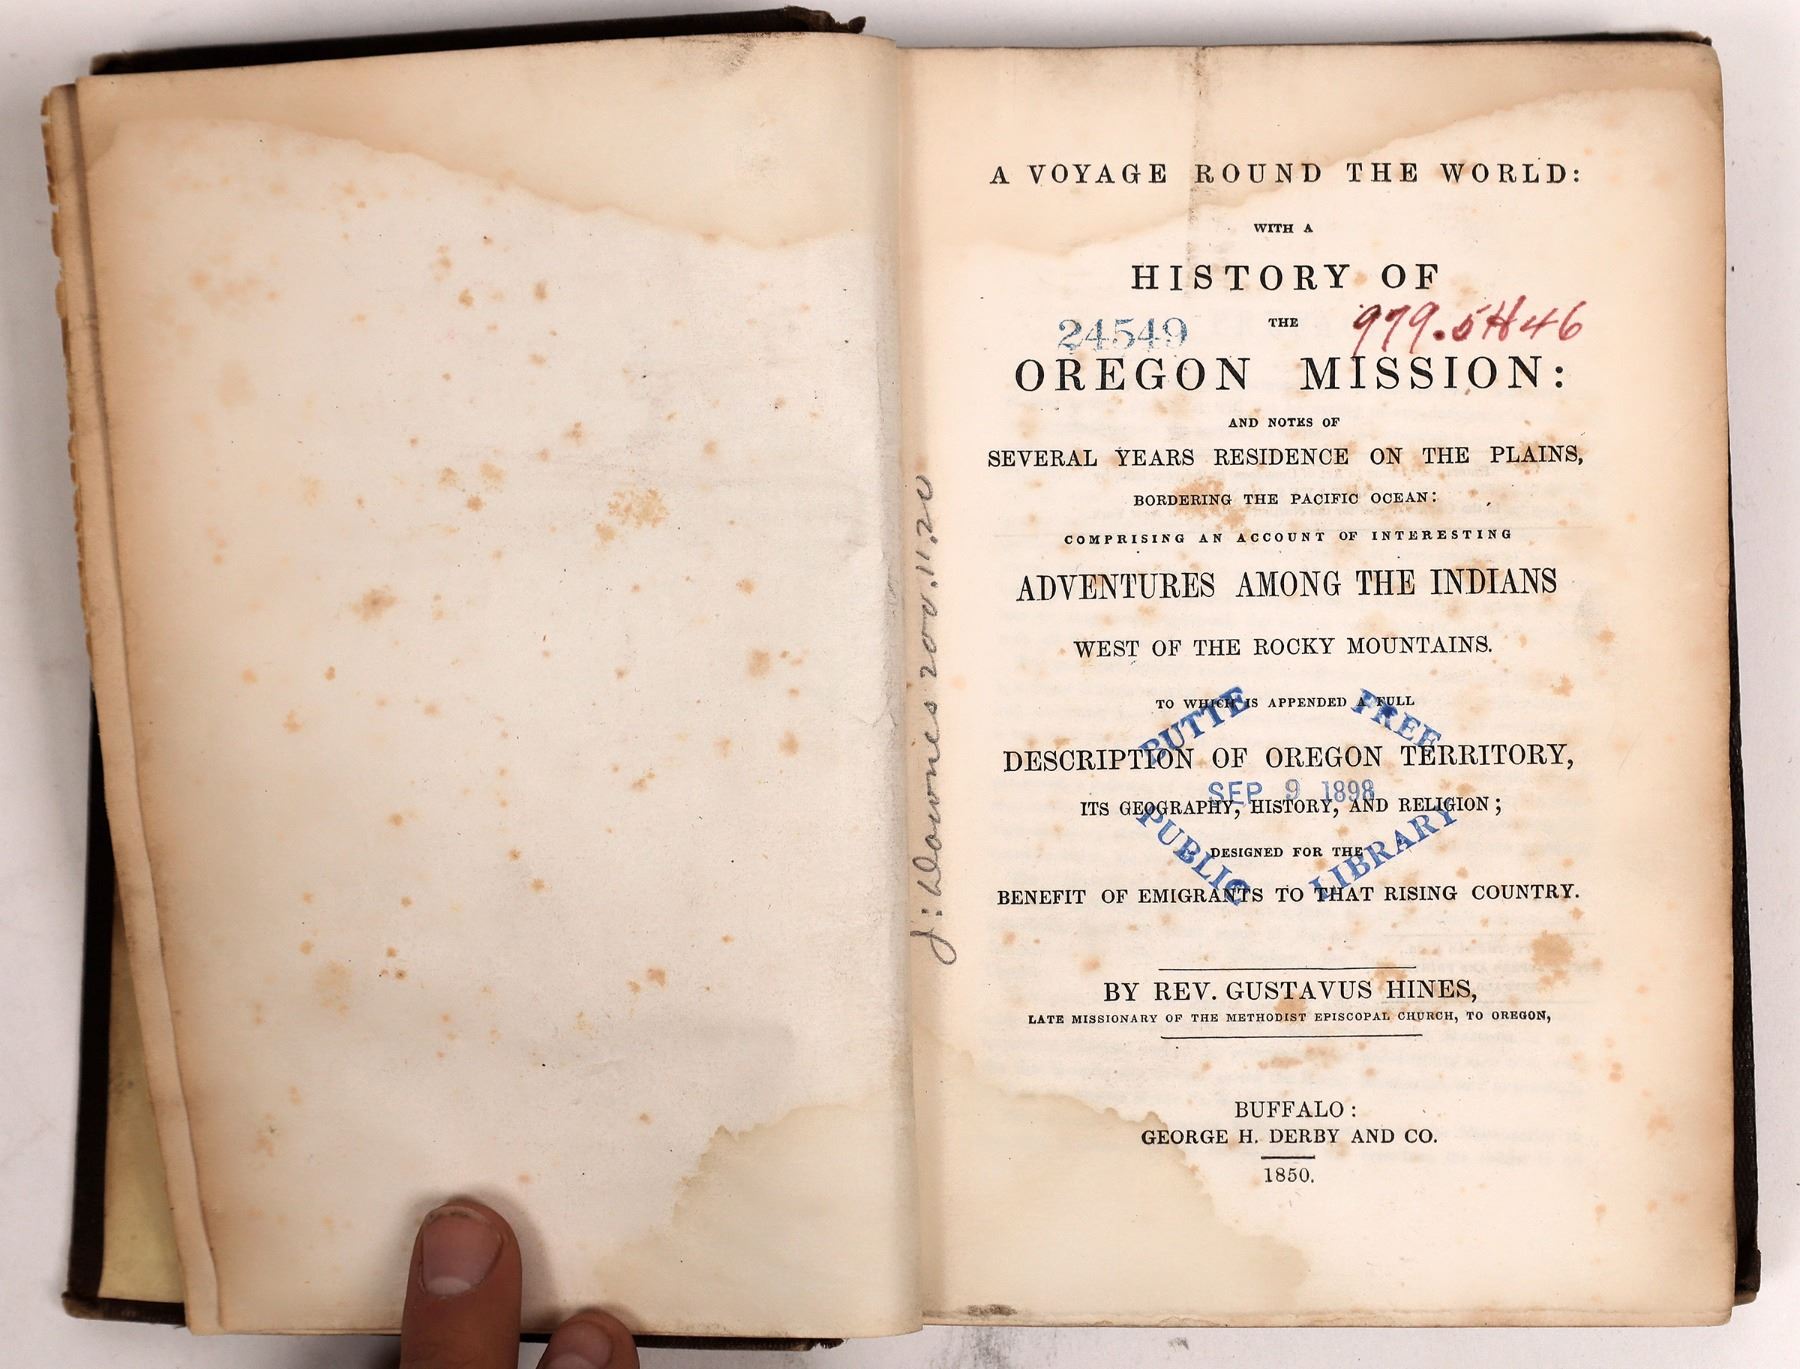 A VOYAGE ROUND THE WORLD:
WITH A
HISTORY OF
THE
24549
979.5H46
OREGON MISSION:
AND NOTES OF
SEVERAL YEARS RESIDENCE ON THE PLAINS,
BORDERING THE PACIFIC OCEAN:
COMPRISING AN ACCOUNT OF INTERESTING
ADVENTURES AMONG THE INDIANS
WEST OF THE ROCKY MOUNTAINS.
TO WHICH IS APPENDED A FULL
DESCRIPTION OF OREGON TERRITORY,
ITS GEOGRAPHY, HISTORY, AND RELIGION;
DESIGNED FOR THE
BENEFIT OF EMIGRANTS TO THAT RISING COUNTRY.
BUTTE FREE
SEP 9 1898
PUBLIC LIBRARY
BY REV. GUSTAVUS HINES,
LATE MISSIONARY OF THE METHODIST EPISCOPAL CHURCH, TO OREGON,
BUFFALO:
GEORGE H. DERBY AND CO.
1850.
J: Downes